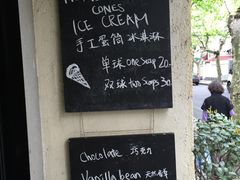 CONES
ICE CREAM
手工蛋筒冰淇淋
单球 one scoop 20-
双球 two scoops 30-
Chocolate 巧克力
Vanilla bean 天然香草